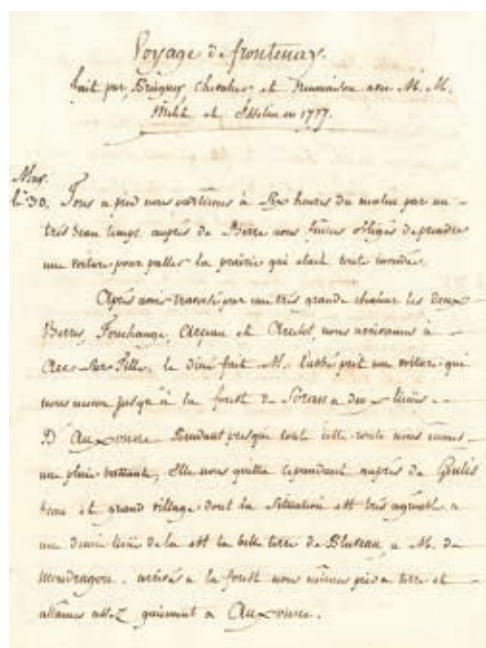 Voyage de frontenay.
fait par, Chevalier et avec M. M.
et en 1777.
May.
le 30. Tous a pied nous partimes à Six heures du matin par un
très beau temps. auprès de nous fumes obligés de prendre
une voiture pour passer la prairie qui etait toute inondée.
Après avoir traversé par une très grande chaleur les deux
Fouchange, Arçeau et Arcelot, nous arrivames à
Arc Sur Tille, le diné fait M. l'abbé prit une voiture qui
nous mena jusqu'à la forest de a deux lieües
D'Auxonne Pendant presque toute cette route nous eumes
une pluie battante, Elle nous quitta cependant auprès de
beau et grand village dont la Situation est très agréable a
une demie lieüe de la est la belle terre de a M. de
Mondragon. arrivés a la forest nous mimes pied a terre et
allames assez gaiement a Auxonne.